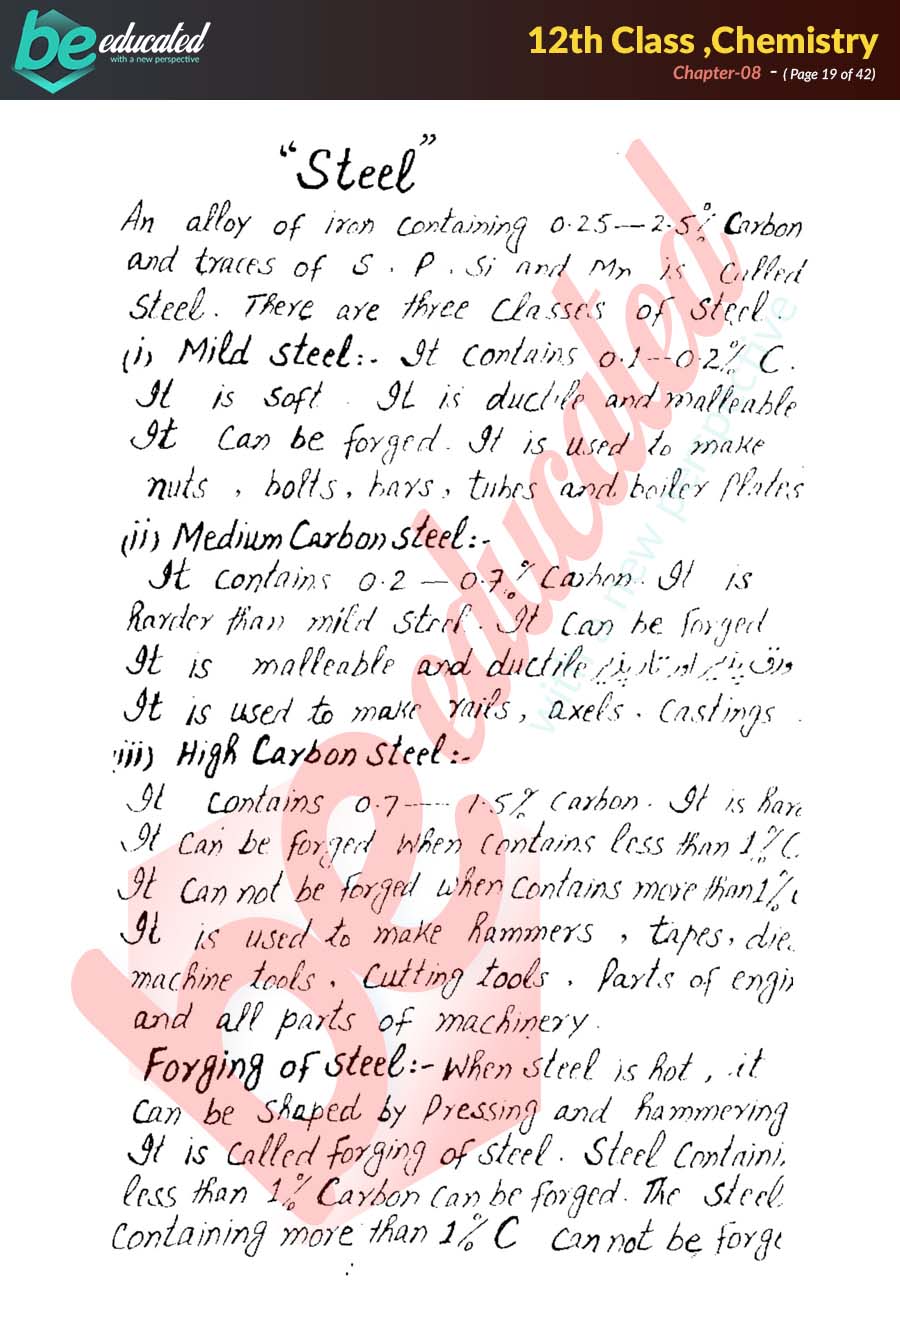 be educated
with a new perspective
12th Class ,Chemistry
Chapter-08 - ( Page 19 of 42)
"Steel"
An alloy of iron containing 0.25—2.5% Carbon
and traces of S . P . Si and Mn is called
Steel. There are three Classes of steel.
(i) Mild steel:- It contains 0.1--0.2% C.
It is soft. It is ductile and malleable
It Can be forged. It is used to make
nuts , bolts, bars, tubes and boiler Plates
(ii) Medium Carbon steel:-
It contains 0.2 — 0.7% Carbon. It is
harder than mild steel. It can be forged
It is malleable and ductile ورق پذیر اور تار پذیر
It is used to make rails, axels. Castings .
iii) High Carbon steel:-
It contains 0.7---- 1.5% Carbon. It is har
It can be forged when contains less than 1% C
It can not be forged when contains more than 1% (
It is used to make hammers , tapes, die
machine tools, Cutting tools . Parts of engin
and all parts of machinery.
Forging of steel:- When steel is hot, it
can be shaped by pressing and hammering
It is called forging of steel. Steel Containi
less than 1% Carbon can be forged. The steel
Containing more than 1% C can not be forge
be educated
with a new perspective